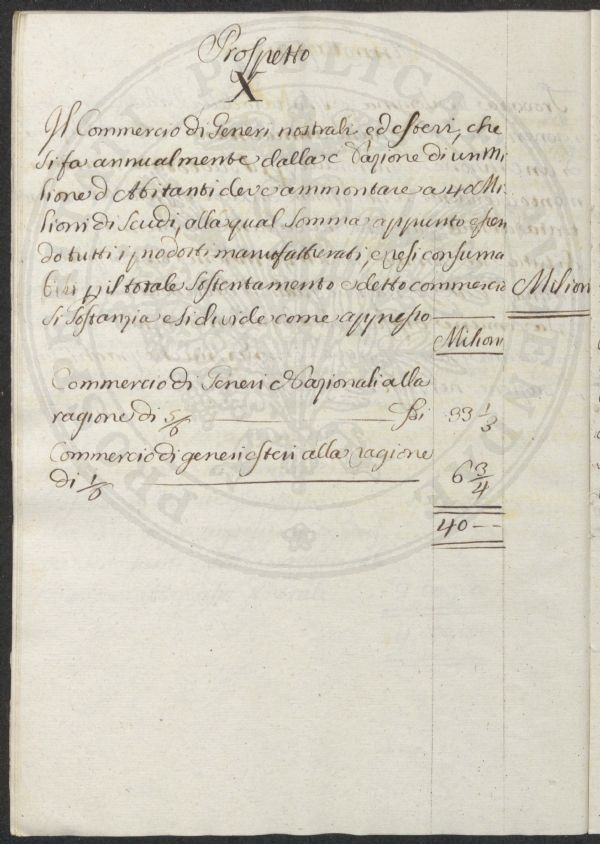 Prospetto
X
Il Commercio di Generi nostrali ed esteri, che
si fa annualmente dalla Nazione di un Mi
lione d'Abitanti deve ammontare a 40 Mi-
lioni di Scudi, alla qual somma appunto essen
do tutti i prodotti manufatturati, e resi consuma
bili p il totale sostentamento e detto commercio
si sostanzia e si divide come appresso
Milioni
Milioni
Commercio di Generi Nazionali alla
ragione di 5/6 33 1/3
Commercio di generi esteri alla ragione
di 1/6 6 3/4
40